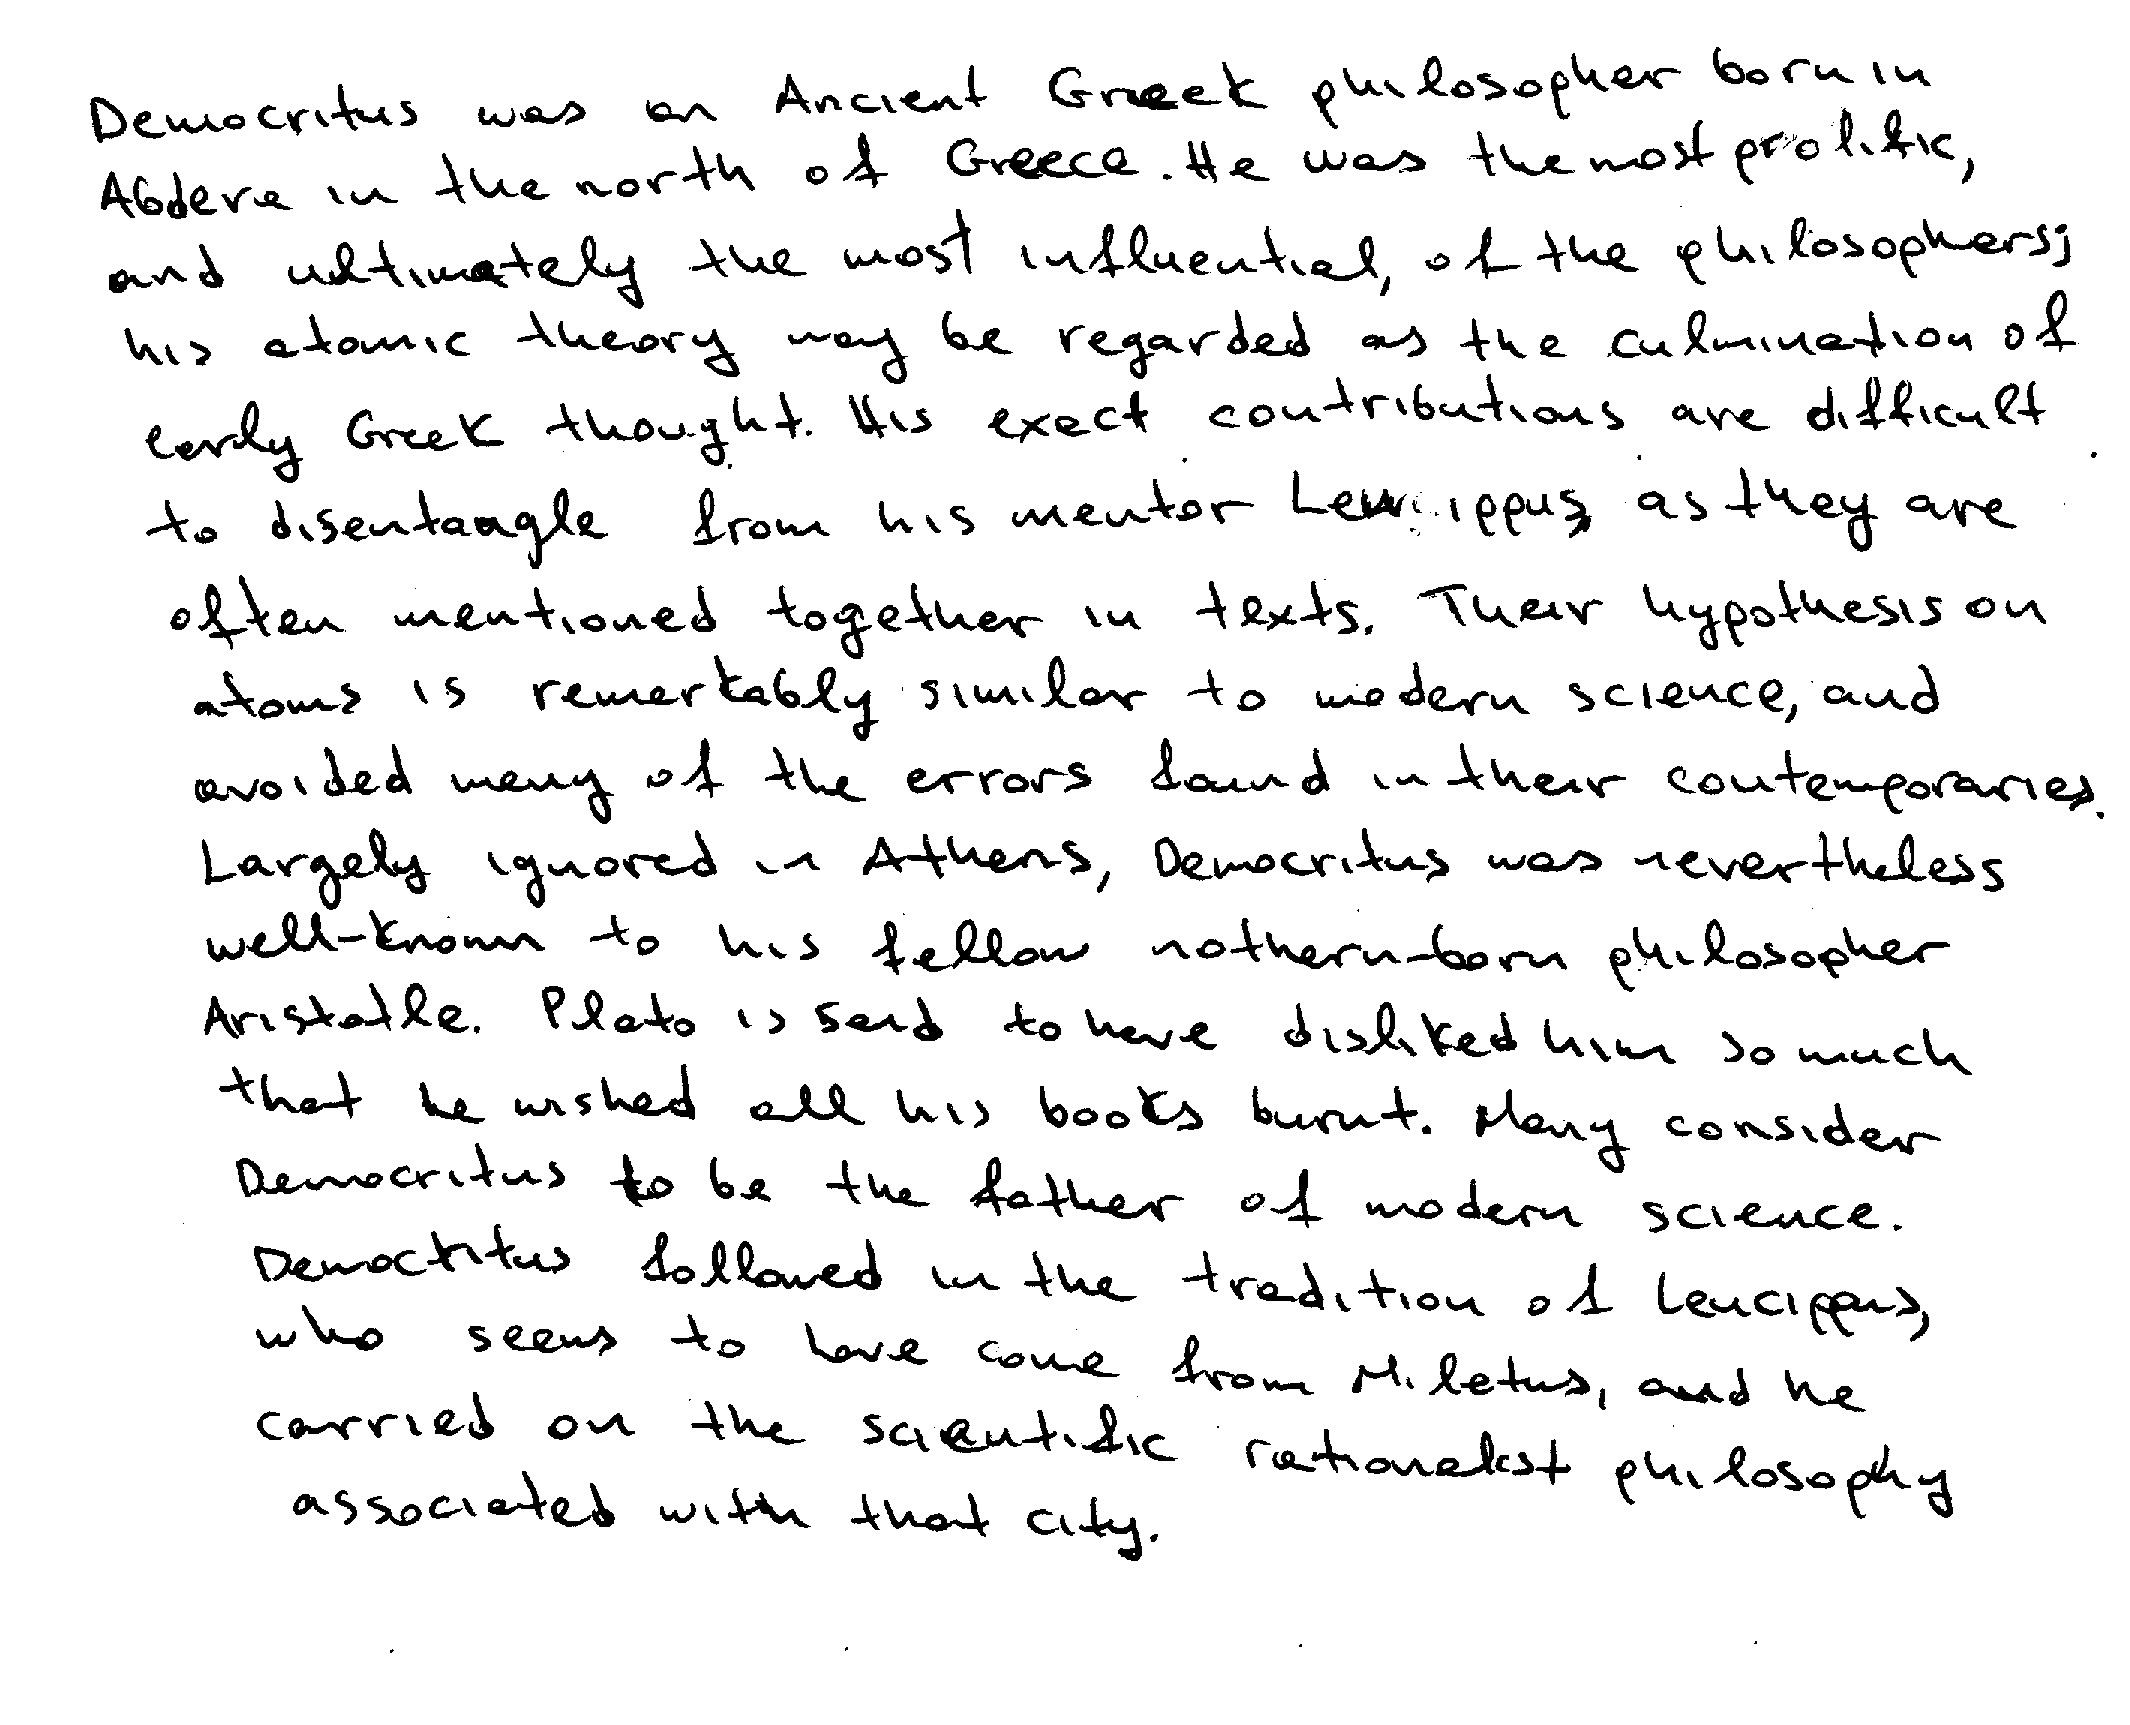 Democritus was an Ancient Greek philosopher born in
Abdera in the north of Greece. He was the most prolific,
and ultimately the most influential, of the philosophers;
his atomic theory may be regarded as the culmination of
early Greek thought. His exact contributions are difficult
to disentangle from his mentor Leucippus, as they are
often mentioned together in texts. Their hypothesis on
atoms is remarkably similar to modern science, and
avoided many of the errors found in their contemporaries.
Largely ignored in Athens, Democritus was nevertheless
well-known to his fellow nothern-born philosopher
Aristotle. Plato is said to have disliked him so much
that he wished all his books burnt. Many consider
Democritus to be the father of modern science.
Democtitus followed in the tradition of Leucippus,
who seems to have come from Miletus, and he
carried on the scientific rationalist philosophy
associated with that city.